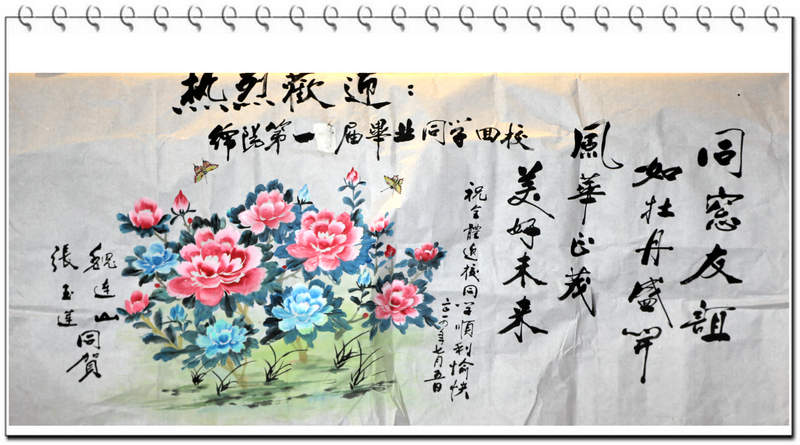 热烈歡迎：
绵阳第一届畢业同学回校
同窓友誼
如牡丹盛開
風華正茂
美好未来
祝全體返校同学順利愉快
二〇一〇年七月五日
魏连山
張玉莲
同賀